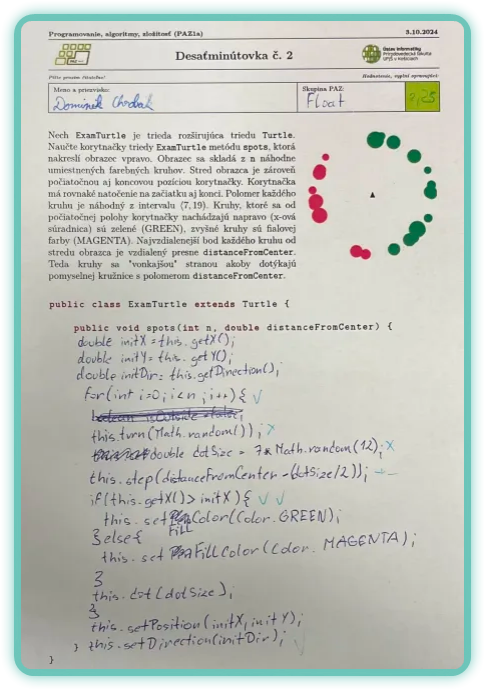 Programovanie, algoritmy, zložitosť (PAZ1a)
3.10.2024
Desaťminútovka č. 2
Ústav informatiky
Prírodovedecká fakulta
UPJŠ v Košiciach
Píšte prosím čitateľne!
Hodnotenie, vyplní opravujúci:
Meno a priezvisko:
Dominik
Skupina PAZ:
Float
Nech ExamTurtle je trieda rozširujúca triedu Turtle.
Naučte korytnačky triedy ExamTurtle metódu spots, ktorá
nakreslí obrazec vpravo. Obrazec sa skladá z n náhodne
umiestnených farebných kruhov. Stred obrazca je zároveň
počiatočnou aj koncovou pozíciou korytnačky. Korytnačka
má rovnaké natočenie na začiatku aj konci. Polomer každého
kruhu je náhodný z intervalu ⟨7,19⟩. Kruhy, ktoré sa od
počiatočnej polohy korytnačky nachádzajú napravo (x-ová
súradnica) sú zelené (GREEN), zvyšné kruhy sú fialovej
farby (MAGENTA). Najvzdialenejší bod každého kruhu od
stredu obrazca je vzdialený presne distanceFromCenter.
Teda kruhy sa "vonkajšou" stranou akoby dotýkajú
pomyselnej kružnice s polomerom distanceFromCenter.
public class ExamTurtle extends Turtle {
public void spots(int n, double distanceFromCenter) {
double initX = this.getX();
double initY = this.getY();
double initDir = this.getDirection();
for(int i=0; i<n; i++){
this.turn(Math.random());
double dotSize = 7* Math.random(12);
this.step(distanceFromCenter -(dotSize/2));
if(this.getX() > initX){
this.setFillColor(Color.GREEN);
}else{
this.setFillColor(Color.MAGENTA);
}
this.dot(dotSize);
}
this.setPosition(initX, initY);
} this.setDirection(initDir);
}